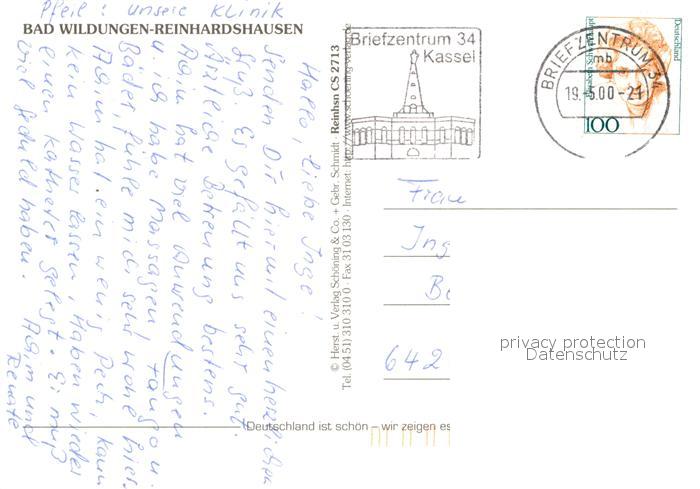 Pfeil: unsere Klinik
BAD WILDUNGEN-REINHARDSHAUSEN
Hallo, liebe Inge!
Senden Dir hiermit einen herzlichen
Gruß. Es gefällt uns sehr gut.
Ärztliche Betreuung bestens.
Achim hat viel Anwendungen
u. ich habe Massagen, Fango u.
Bäder, fühle mich sehr wohl hier.
Achim hat ein wenig Pech, kann
kein Wasser lassen, haben wieder
einen Katheter gelegt. Er muß
viel Geduld haben. Achim und
Renate
© Herst. u. Verlag Schöning & Co. + Gebr. Schmidt · Reinhsn CS 2713
Tel. (04 51) 310 310 0 · Fax 31 03 130 · Internet: http://www.schoening-verlag.de
Briefzentrum 34
Kassel
BRIEFZENTRUM 34
mb
19.-5.00-21
Deutschland
100
Frau
Ing
Be
642
privacy protection
Datenschutz
Deutschland ist schön – wir zeigen es